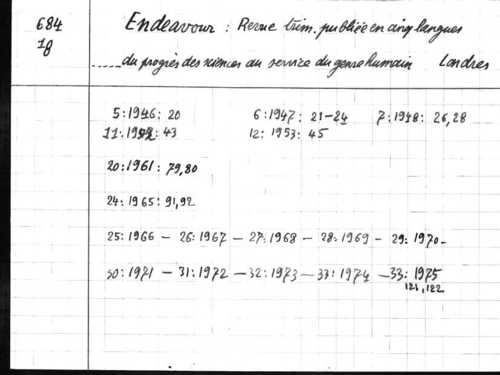 684
18
Endeavour : Revue trim. publiée en cinq langues
.....du progrès des sciences au service du genre humain Londres
5:1946: 20 6:1947: 21-24 7:1948: 26,28
11:1952: 43 12: 1953: 45
20:1961: 79,80
24:1965: 91,92
25:1966 - 26:1967 - 27:1968 - 28:1969 - 29:1970-
30:1971 - 31:1972 - 32:1973 - 33:1974 - 33:1975
121,122